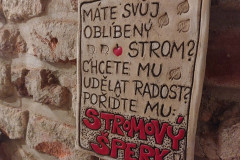 MÁTE SVŮJ
OBLÍBENÝ
STROM?
CHCETE MU
UDĚLAT RADOST?
POŘIĎTE MU:
STROMOVÝ
ŠPERK